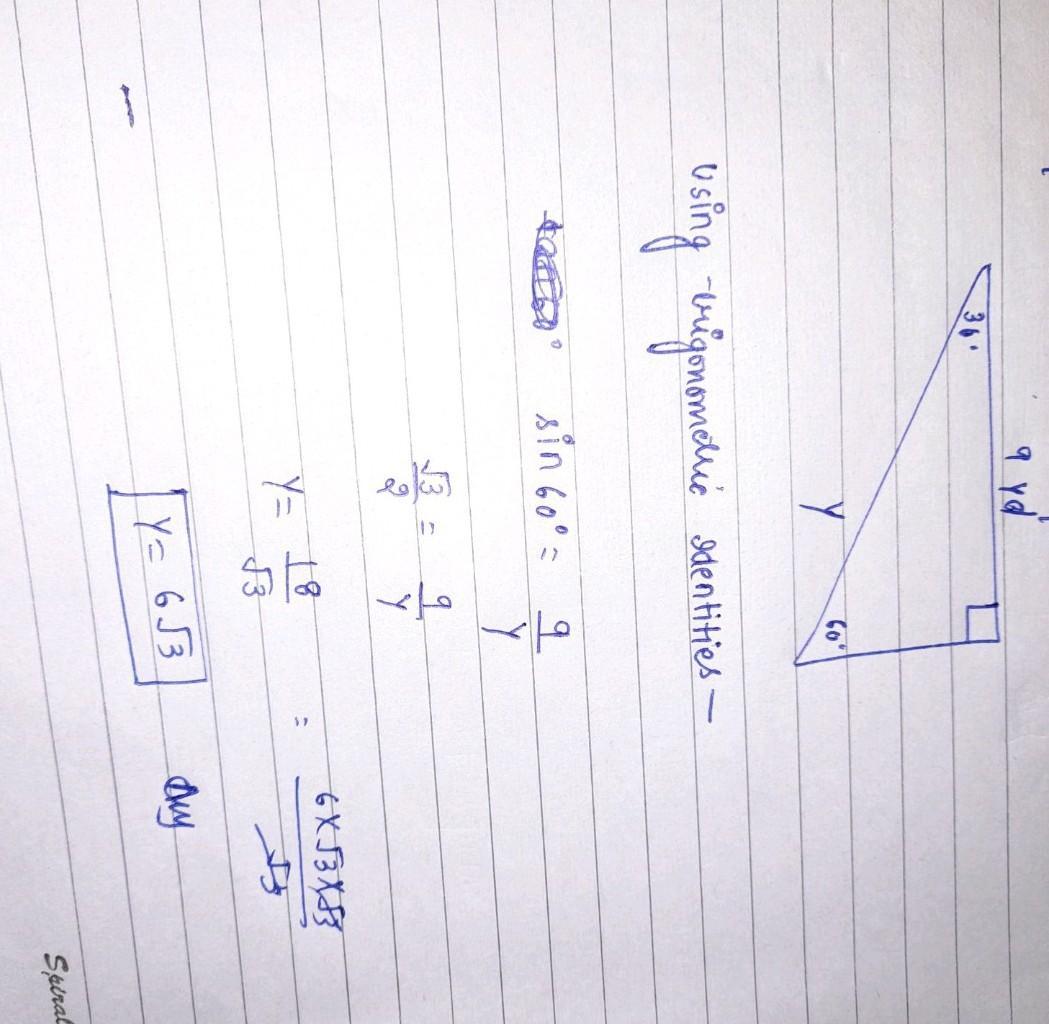 9 yd
36°
60°
Y
Using trigonometric Identities—
sin 60° = 9/Y
√3/2 = 9/Y
Y = 18/√3 = 6×√3×√3/√3
Y = 6√3
Spiral